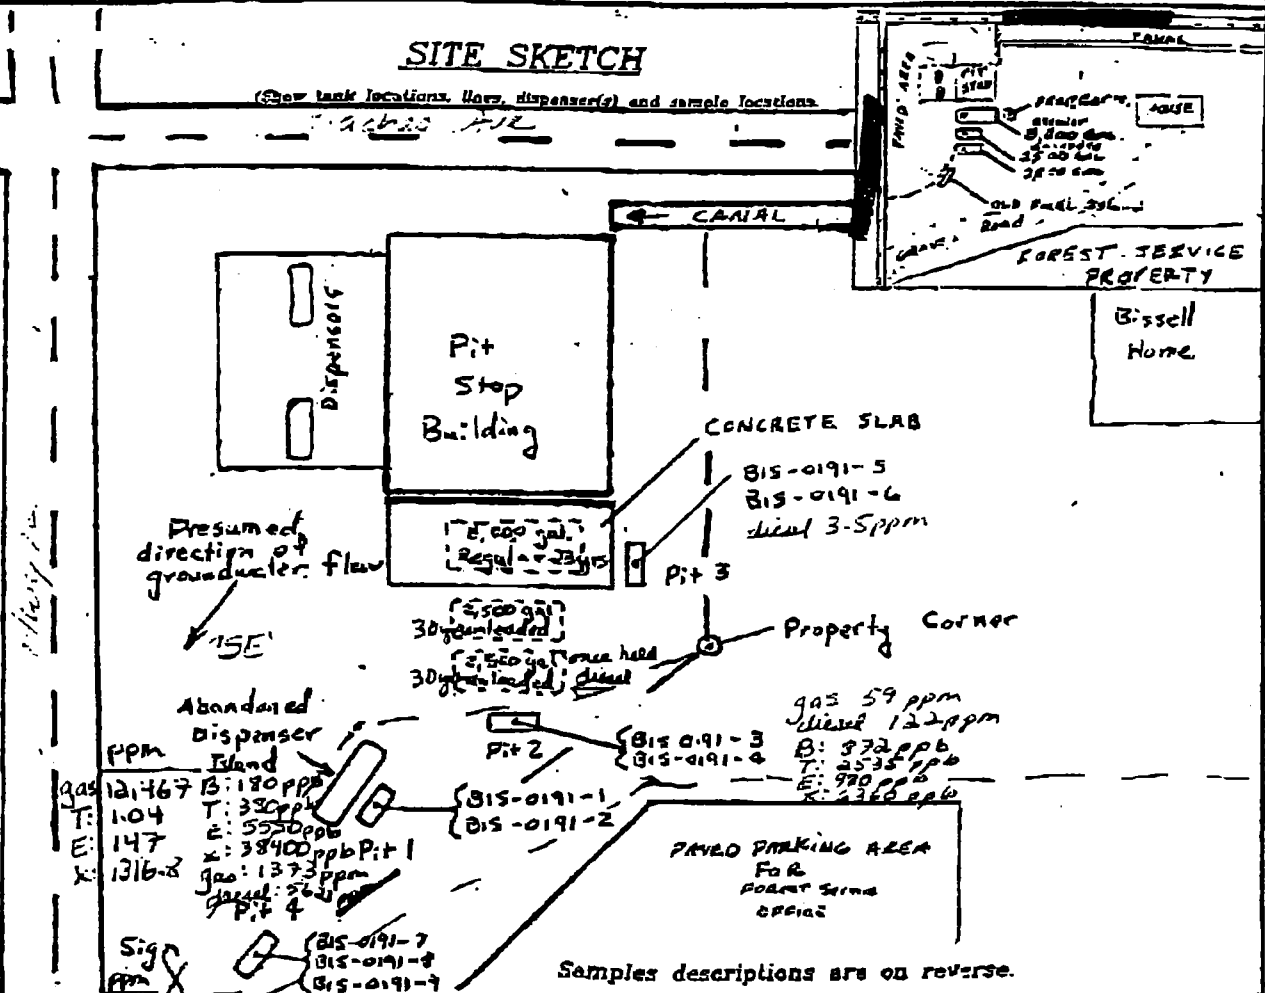 SITE SKETCH
(Show tank locations, lines, dispenser(s) and sample locations
Ave
CANAL
PAVED AREA
PIT
STOP
HOUSE
8,000 Gal
2500 Gal
OLD FUEL
Road
CANAL
FOREST SERVICE
PROPERTY
Bissell
Home
Dispensors
Pit
Stop
Building
CONCRETE SLAB
BIS-0191-5
BIS-0191-6
diesel 3.5ppm
Presumed
direction of
groundwater flow
"SE"
8,000 gal.
Regular - 23yrs
Pit 3
2,500 gal
30yr unleaded
2,500 gal once held
30yr unleaded diesel
Property Corner
Abandoned
Dispenser
Island
Pit 2
BIS 0191-3
BIS-0191-4
gas 59 ppm
diesel 122ppm
B: 872ppb
T: 2535 ppb
E: 970 ppb
X: 6360 ppb
ppm
gas 12,467
T: 1.04
E: 147
X: 1316.8
B: 180 ppb
T: 380ppb
E: 5550ppb
X: 38400ppb
gas: 1373ppm
diesel:
Pit 1
BIS-0191-1
BIS-0191-2
Pit 4
PAVED PARKING AREA
FOR
FOREST SERVICE
OFFICE
Sign
ppm
BIS-0191-7
BIS-0191-8
BIS-0191-9
Samples descriptions are on reverse.